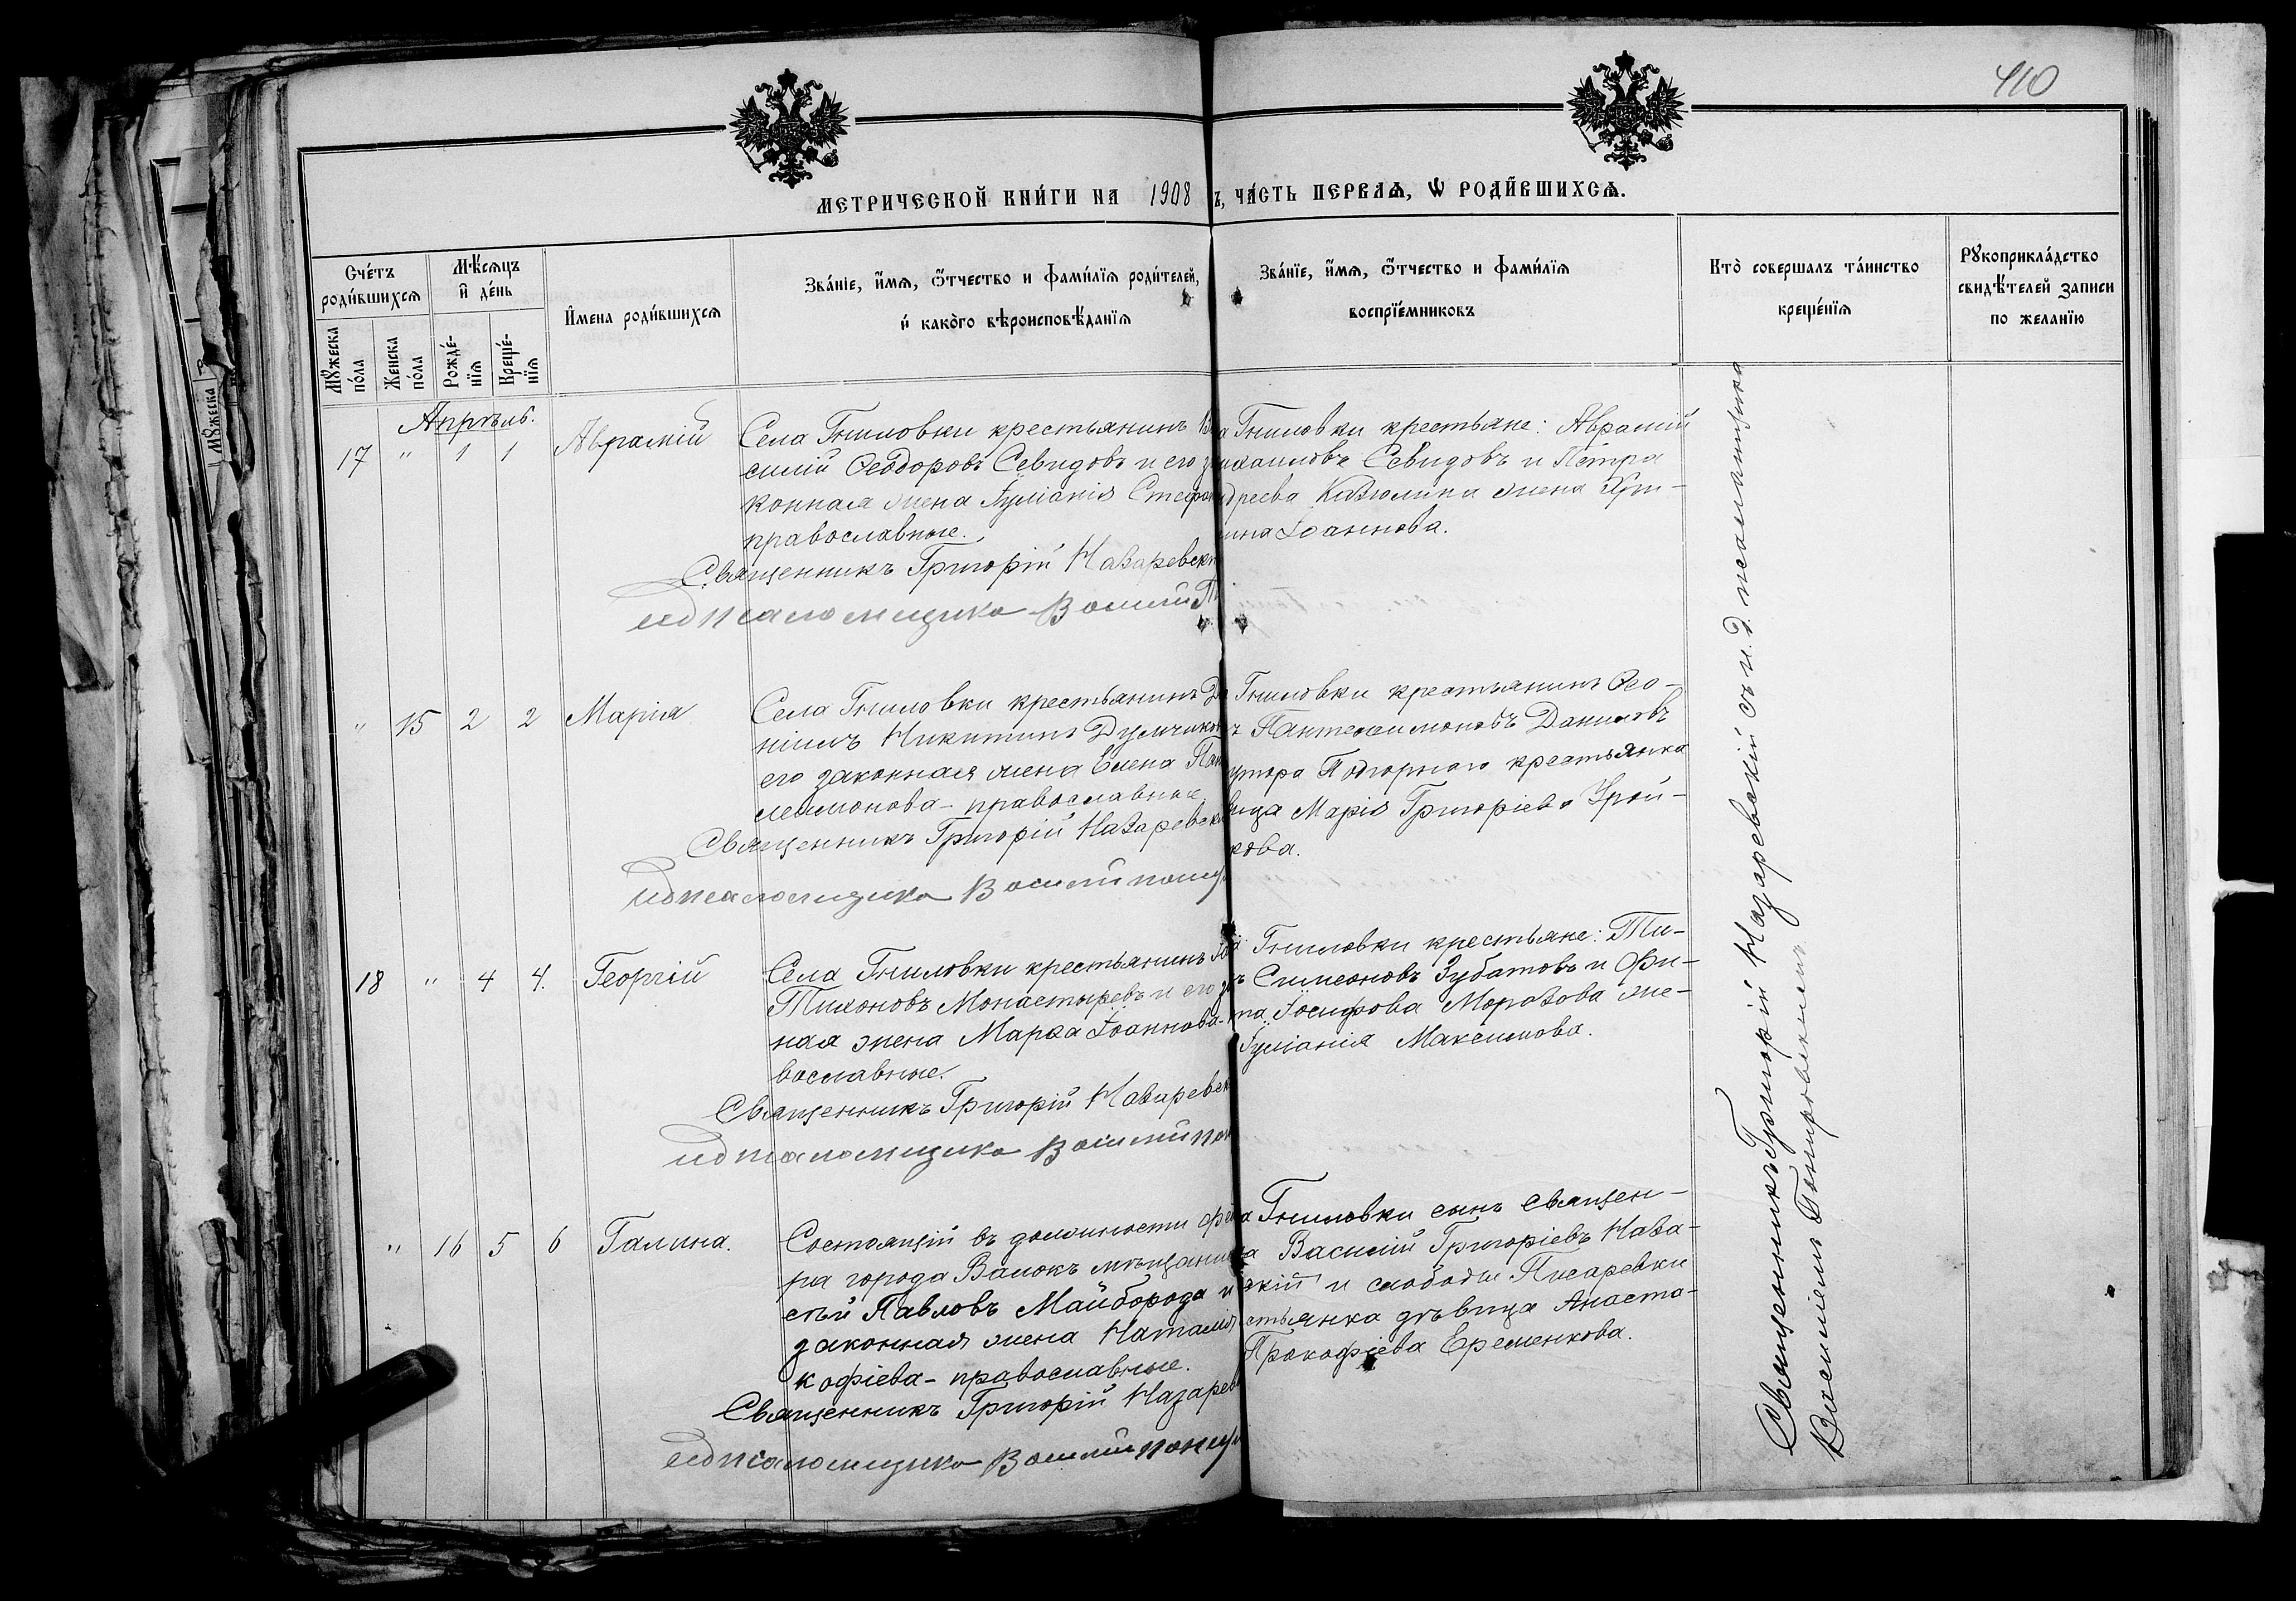 410
МЕТРИЧЕСКОЙ КНИГИ НА 1908
Ъ, ЧАСТЬ ПЕРВАЯ, Ѡ РОДИВШИХСЯ.
Счетъ родившихся
Мужеска пола
Женска пола
Мѣсяцъ и день
Рожденія
Крещенія
Имена родившихся
Званіе, имя, отчество и фамилія родителей,
и какого вѣроисповѣданія
Званіе, имя, отчество и фамилія
воспріемниковъ
Кто совершалъ таинство
крещенія
Рукоприкладство
свидѣтелей записи
по желанію
Мужеска
Апрѣль.
17 " 1 1 Аврамій
Села Гниловки крестьянинъ Ва
силій Ѳеодоровъ Севидовъ и его за
конная жена Іуліанія Стефан
православные.
Священникъ Григорій Назаревск
ид псаломщика Василій П
а Гниловки крестьяне: Аврамій
ихаиловъ Севидовъ и Петра
дреева Казюлина жена Хри-
ина Іоаннова.
" 15 2 2 Марія
Села Гниловки крестьянинъ Да
ніилъ Никитинъ Думчиков
его законная жена Елена Пан
леимонова - православные
Священникъ Григорій Назаревск
ид псаломщика Василій
Гниловки крестьянинъ Ѳео-
ъ Пантелеимоновъ Даниловъ
утора Подгорнаго крестьянка
вица Марія Григоріева Урой-
кова.
18 " 4 4. Георгій
Села Гниловки крестьянинъ Іоа
Тихоновъ Монастыревъ и его за
ная жена Марѳа Іоаннова-
вославные.
Священникъ Григорій Назаревск
ид псаломщика Василій
Гниловки крестьяне: Ти-
ъ Симеоновъ Зубатовъ и Фи-
та Іосифова Морозова же-
Іуліанія Максимова.
" 16 5 6 Галина.
Состоящій въ должности фе
ра города Валокъ мѣщанин
сѣй Павловъ Майборода и
законная жена Наталія
кофіева - православные.
Священникъ Григорій Назарев
ид псаломщика Василій
а Гниловки сынъ священ-
а Василій Григоріевъ Наза-
скій и слободы Писаревки
естьянка дѣвица Анаста-
Прокофіева Еременкова.
Священникъ Григорій Назаревскій съ и. д. псаломщика
Василіемъ